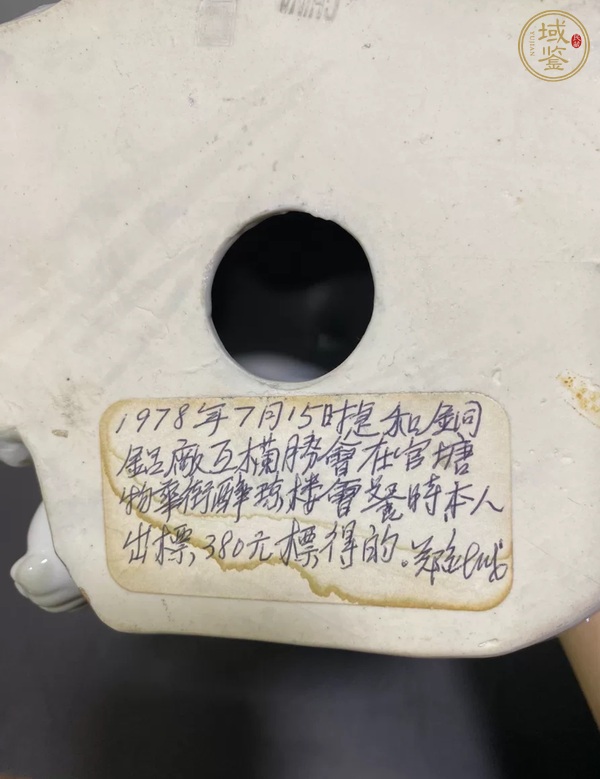 CHINA
域鉴
YUJIAN
1978年7月15时是和銅
鋁廠互横勝會在官塘
物華街醉瓊楼會餐時本人
出標，380元標得的。鄭